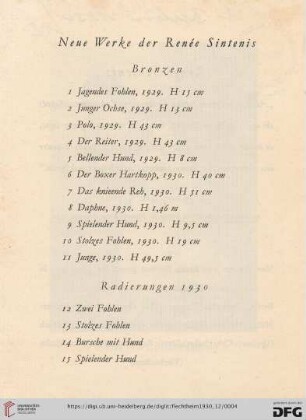 Neue Werke der Renée Sintenis
Bronzen
1 Jagendes Fohlen, 1929. H 15 cm
2 Junger Ochse, 1929. H 13 cm
3 Polo, 1929. H 43 cm
4 Der Reiter, 1929. H 43 cm
5 Bellender Hund, 1929. H 8 cm
6 Der Boxer Hartkopp, 1930. H 40 cm
7 Das knieende Reh, 1930. H 51 cm
8 Daphne, 1930. H 1,46 m
9 Spielender Hund, 1930. H 9,5 cm
10 Stolzes Fohlen, 1930. H 19 cm
11 Junge, 1930. H 49,5 cm
Radierungen 1930
12 Zwei Fohlen
13 Stolzes Fohlen
14 Bursche mit Hund
15 Spielender Hund
UNIVERSITÄTS-
BIBLIOTHEK
HEIDELBERG
https://digi.ub.uni-heidelberg.de/diglit/flechtheim1930_12/0004
gefördert durch die
DFG